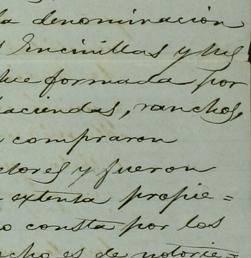 la denominación
Encinillas y
fue formada por
haciendas, ranchos,
compraron
ctores y fueron
extenta propie=
o consta por los
cho es de notorie=